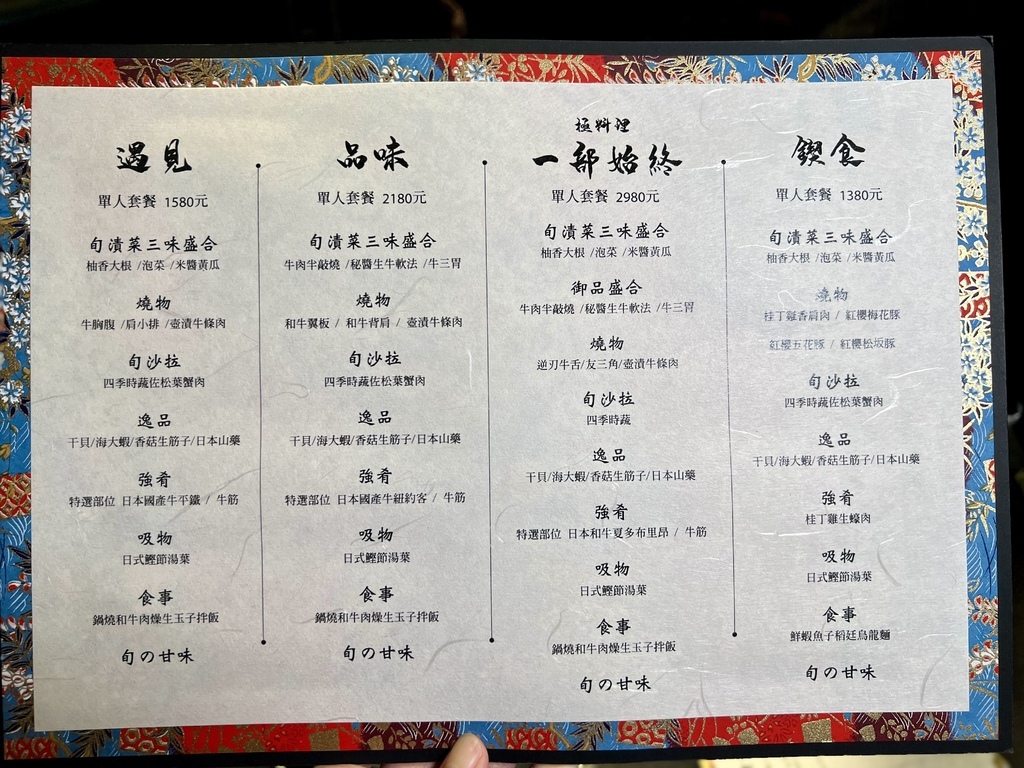 遇見
單人套餐 1580元
旬漬菜三味盛合
柚香大根 /泡菜 /米醬黃瓜
燒物
牛胸腹 /肩小排 /壺漬牛條肉
旬沙拉
四季時蔬佐松葉蟹肉
逸品
干貝/海大蝦/香菇生筋子/日本山藥
強肴
特選部位 日本國產牛平鐵 / 牛筋
吸物
日式鰹節湯葉
食事
鍋燒和牛肉燥生玉子拌飯
旬の甘味
品味
單人套餐 2180元
旬漬菜三味盛合
牛肉半敲燒 /秘醬生牛軟法 /牛三胃
燒物
和牛翼板 / 和牛背肩 / 壺漬牛條肉
旬沙拉
四季時蔬佐松葉蟹肉
逸品
干貝/海大蝦/香菇生筋子/日本山藥
強肴
特選部位 日本國產牛紐約客 / 牛筋
吸物
日式鰹節湯葉
食事
鍋燒和牛肉燥生玉子拌飯
旬の甘味
極料理
一部始終
單人套餐 2980元
旬漬菜三味盛合
柚香大根 /泡菜 /米醬黃瓜
御品盛合
牛肉半敲燒 /秘醬生牛軟法 /牛三胃
燒物
逆刃牛舌/友三角/壺漬牛條肉
旬沙拉
四季時蔬
逸品
干貝/海大蝦/香菇生筋子/日本山藥
強肴
特選部位 日本和牛夏多布里昂 / 牛筋
吸物
日式鰹節湯葉
食事
鍋燒和牛肉燥生玉子拌飯
旬の甘味
鍥食
單人套餐 1380元
旬漬菜三味盛合
柚香大根 /泡菜 /米醬黃瓜
燒物
桂丁雞香肩肉 / 紅櫻梅花豚
紅櫻五花豚 / 紅櫻松坂豚
旬沙拉
四季時蔬佐松葉蟹肉
逸品
干貝/海大蝦/香菇生筋子/日本山藥
強肴
桂丁雞生蠔肉
吸物
日式鰹節湯葉
食事
鮮蝦魚子稻廷烏龍麵
旬の甘味